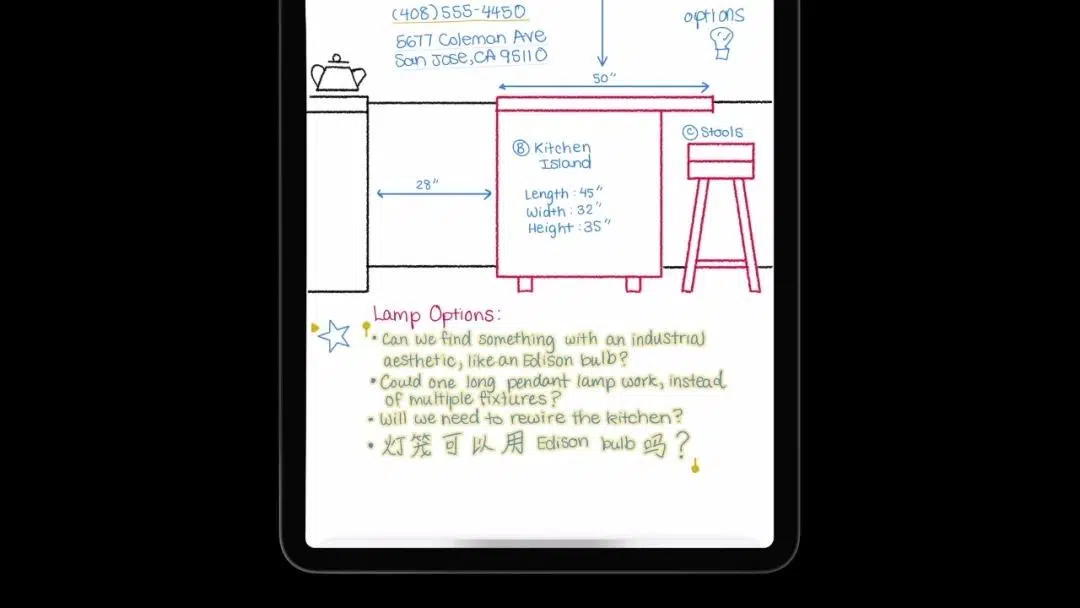 (408) 555-4450
options
5677 Coleman Ave
San Jose, CA 95110
50"
Ⓒ Stools
Ⓑ Kitchen
Island
28"
Length : 45"
Width : 32"
Height : 35"
Lamp Options:
• Can we find something with an industrial
aesthetic, like an Edison bulb?
• Could one long pendant lamp work, instead
of multiple fixtures?
• Will we need to rewire the kitchen?
• 灯笼可以用 Edison bulb 吗?